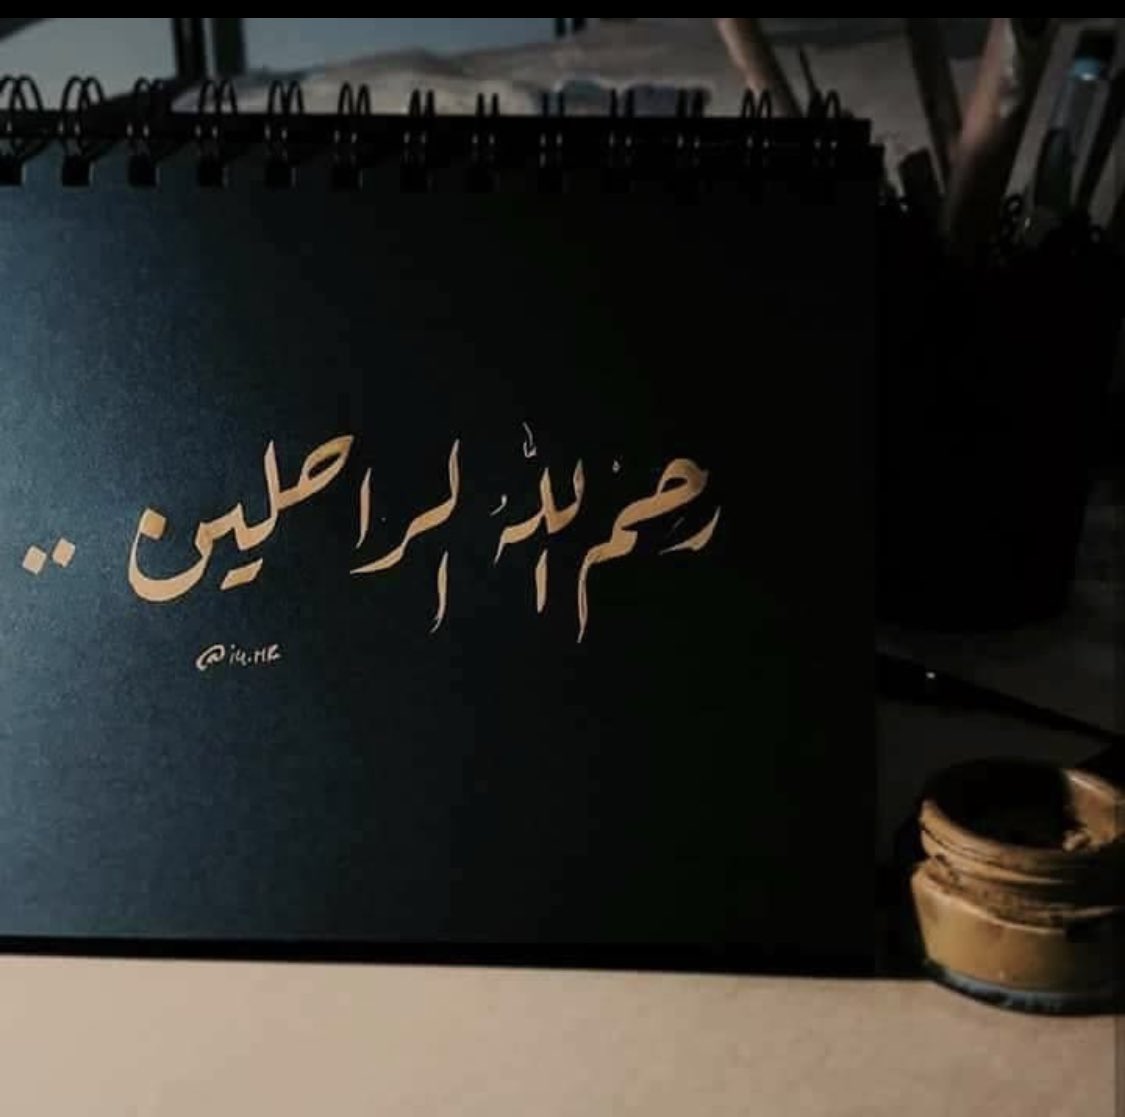 رحم الله الراحلين ..
@i4.MR